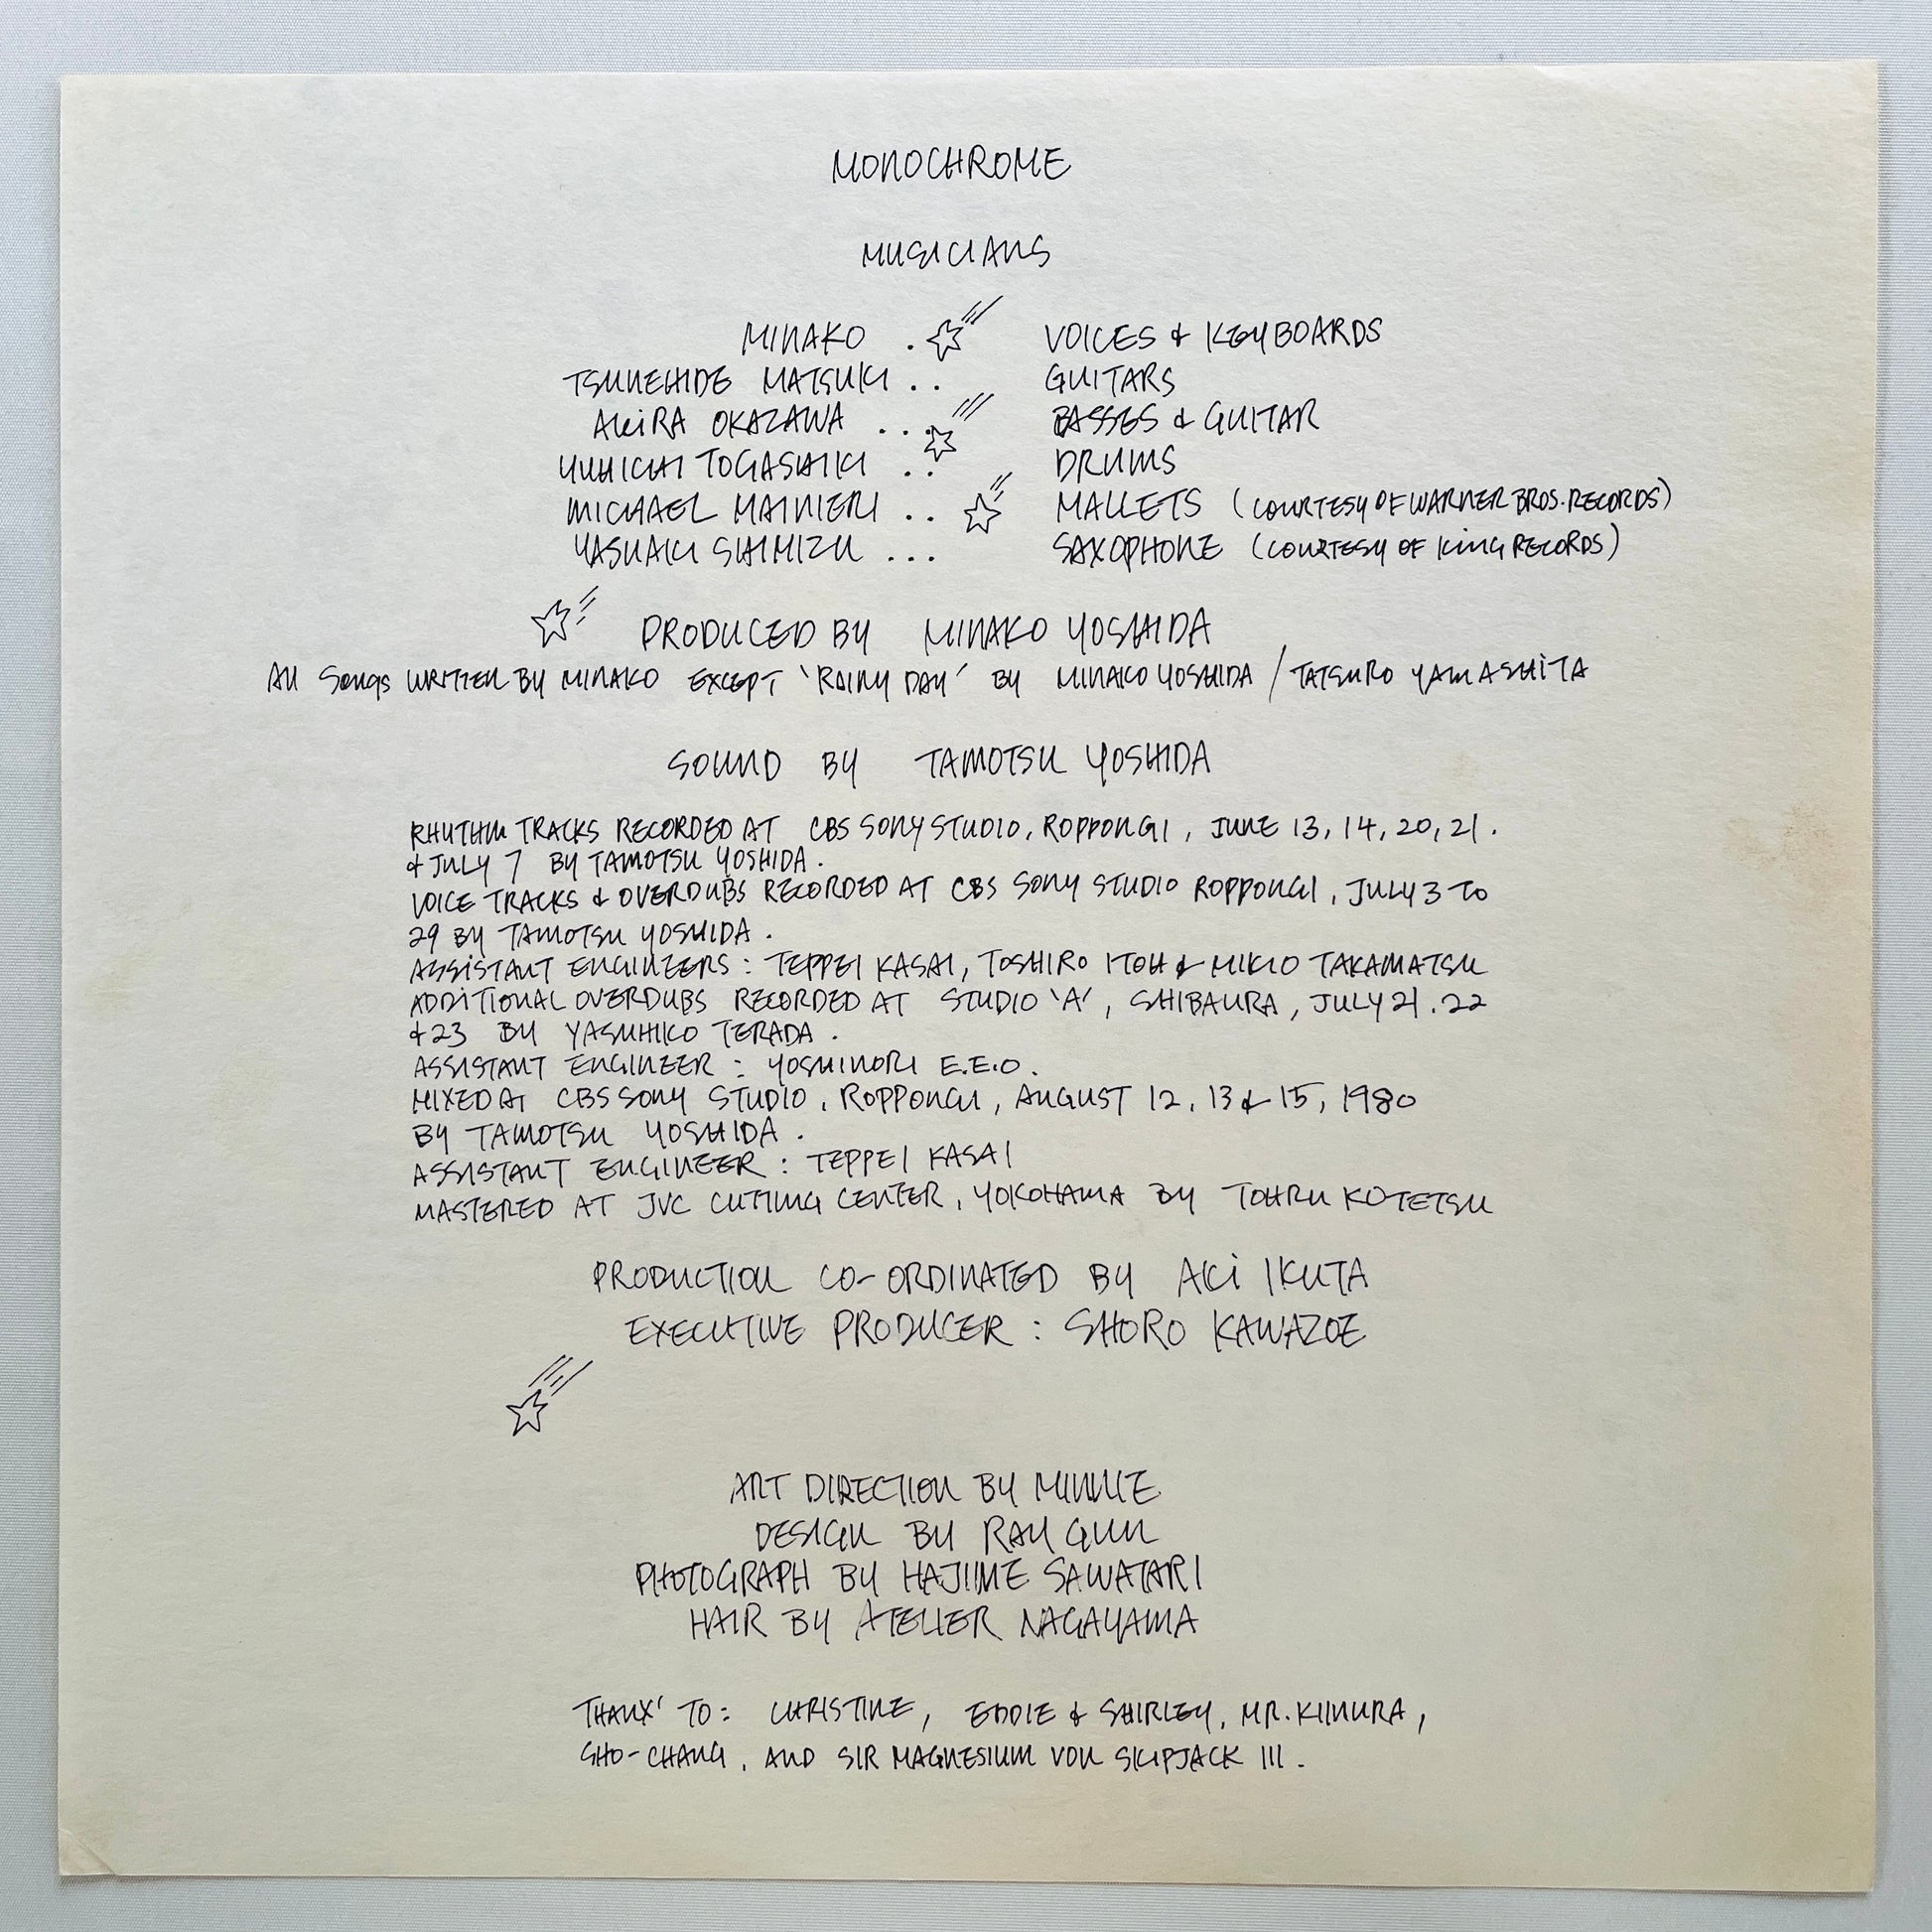 MONOCHROME
MUSICIANS
MINAKO . VOICES & KEYBOARDS
TSUNEHIDE MATSUKI .. GUITARS
AKiRA OKAZAWA ... BASSES & GUITAR
YUHICHI TOGASHIKI .. DRUMS
MICHAEL MAINIERI .. MALLETS (COURTESY OF WARNER BROS. RECORDS)
YASUAKI SHIMIZU ... SAXOPHONE (COURTESY OF KiNG RECORDS)
PRODUCED BY MINAKO YOSHIDA
All Songs WRITTEN BY MINAKO EXCEPT 'RAINY DAY' BY MINAKO YOSHIDA / TATSURO YAMASHiTA
SOUND BY TAMOTSU YOSHIDA
RHYTHM TRACKS RECORDED AT CBS SONY STUDIO, ROPPONGI, JUNE 13, 14, 20, 21.
& JULY 7 BY TAMOTSU YOSHIDA.
VOICE TRACKS & OVERDUBS RECORDED AT CBS SONY STUDIO ROPPONGI, JULY 3 TO
29 BY TAMOTSU YOSHIDA.
ASSiSTANT ENGINEERS : TEPPEI KASAI, TOSHIRO ITOH & MIKIO TAKAMATSU
ADDiTIONAL OVERDUBS RECORDED AT STUDIO 'A', SHIBAURA, JULY 21. 22
& 23 BY YASUHIKO TERADA.
ASSISTANT ENGINEER : YOSHINORI E.E.O.
MIXED AT CBS SONY STUDIO, ROPPONGI, AUGUST 12, 13 & 15, 1980
BY TAMOTSU YOSHIDA.
ASSISTANT ENGINEER : TEPPEI KASAI
MASTERED AT JVC CUTTING CENTER, YOKOHAMA BY TOHRU KOTETSU
PRODUCTION CO-ORDINATED BY AKi IKUTA
EXECUTIVE PRODUCER : SHORO KAWAZOE
ART DIRECTION BY MINNIE
DESIGN BY RAY GUN
PHOTOGRAPH BY HAJIME SAWATARI
HAIR BY ATELIER NAGAYAMA
THANX' TO : CHRISTINE, EDDIE & SHIRLEY, MR. KIMURA,
SHO-CHANG, AND SIR MAGNESIUM VON SKIPJACK III.